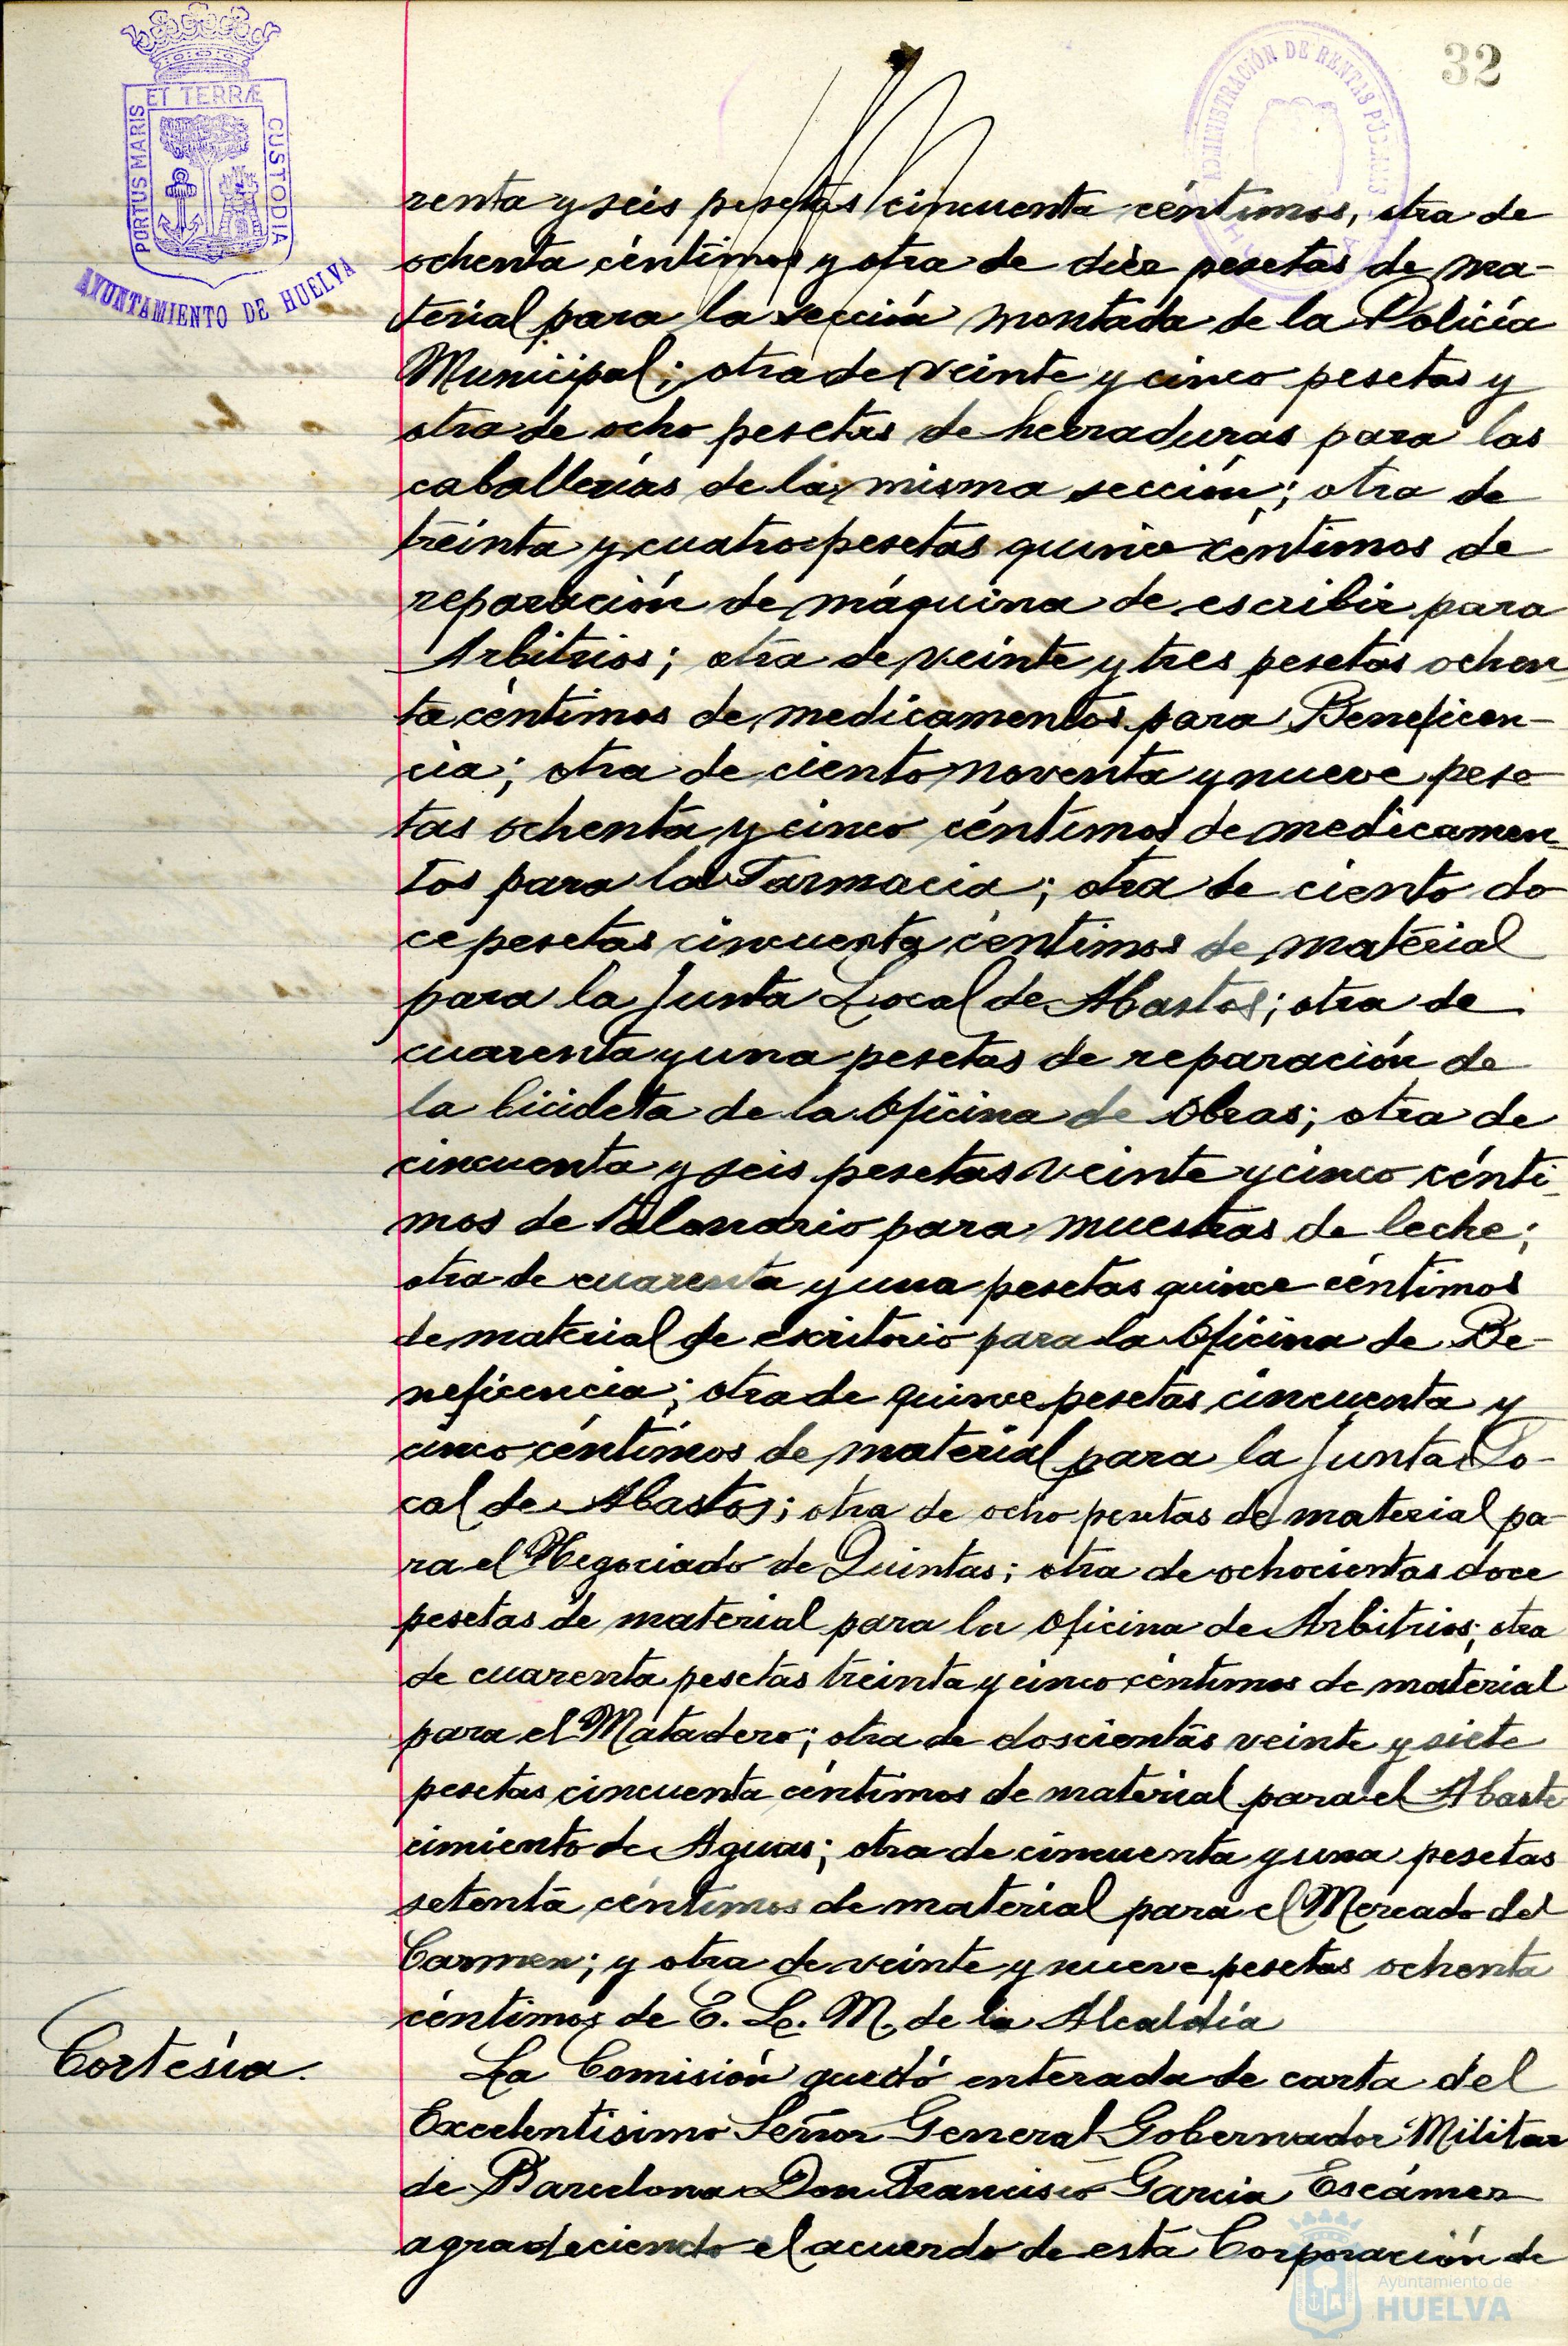 32
ET TERRÆ
PORTUS MARIS
CUSTODIA
AYUNTAMIENTO DE HUELVA
ADMINISTRACIÓN DE RENTAS PÚBLICAS
renta y seis pesetas cincuenta céntimos, otra de
ochenta céntimos y otra de diez pesetas de ma-
terial para la sección montada de la Policía
Municipal; otra de veinte y cinco pesetas y
otra de ocho pesetas de herraduras para las
caballerías de la misma sección; otra de
treinta y cuatro pesetas quince céntimos de
reparación de máquina de escribir para
Arbitrios; otra de veinte y tres pesetas ochen-
ta céntimos de medicamentos para Beneficen-
cia; otra de ciento noventa y nueve pese-
tas ochenta y cinco céntimos de medicamen-
tos para la Farmacia; otra de ciento do
ce pesetas cincuenta céntimos de material
para la Junta Local de Abastos; otra de
cuarenta y una pesetas de reparación de
la bicicleta de la Oficina de Obras; otra de
cincuenta y seis pesetas veinte y cinco cénti-
mos de talonario para muestras de leche;
otra de cuarenta y una pesetas quince céntimos
de material de escritorio para la Oficina de Be-
neficencia; otra de quince pesetas cincuenta y
cinco céntimos de material para la Junta Lo-
cal de Abastos; otra de ocho pesetas de material pa-
ra el Negociado de Quintas; otra de ochocientas doce
pesetas de material para la Oficina de Arbitrios; otra
de cuarenta pesetas treinta y cinco céntimos de material
para el Matadero; otra de doscientas veinte y siete
pesetas cincuenta céntimos de material para el Abaste-
cimiento de Aguas; otra de cincuenta y una pesetas
setenta céntimos de material para el Mercado del
Carmen; y otra de veinte y nueve pesetas ochenta
céntimos de E. L. M. de la Alcaldía
Cortesía.
La Comisión quedó enterada de carta del
Excelentisimo Señor General Gobernador Militar
de Barcelona Don Francisco Garcia Escámez
agradeciendo el acuerdo de esta Corporación de
Ayuntamiento de
HUELVA